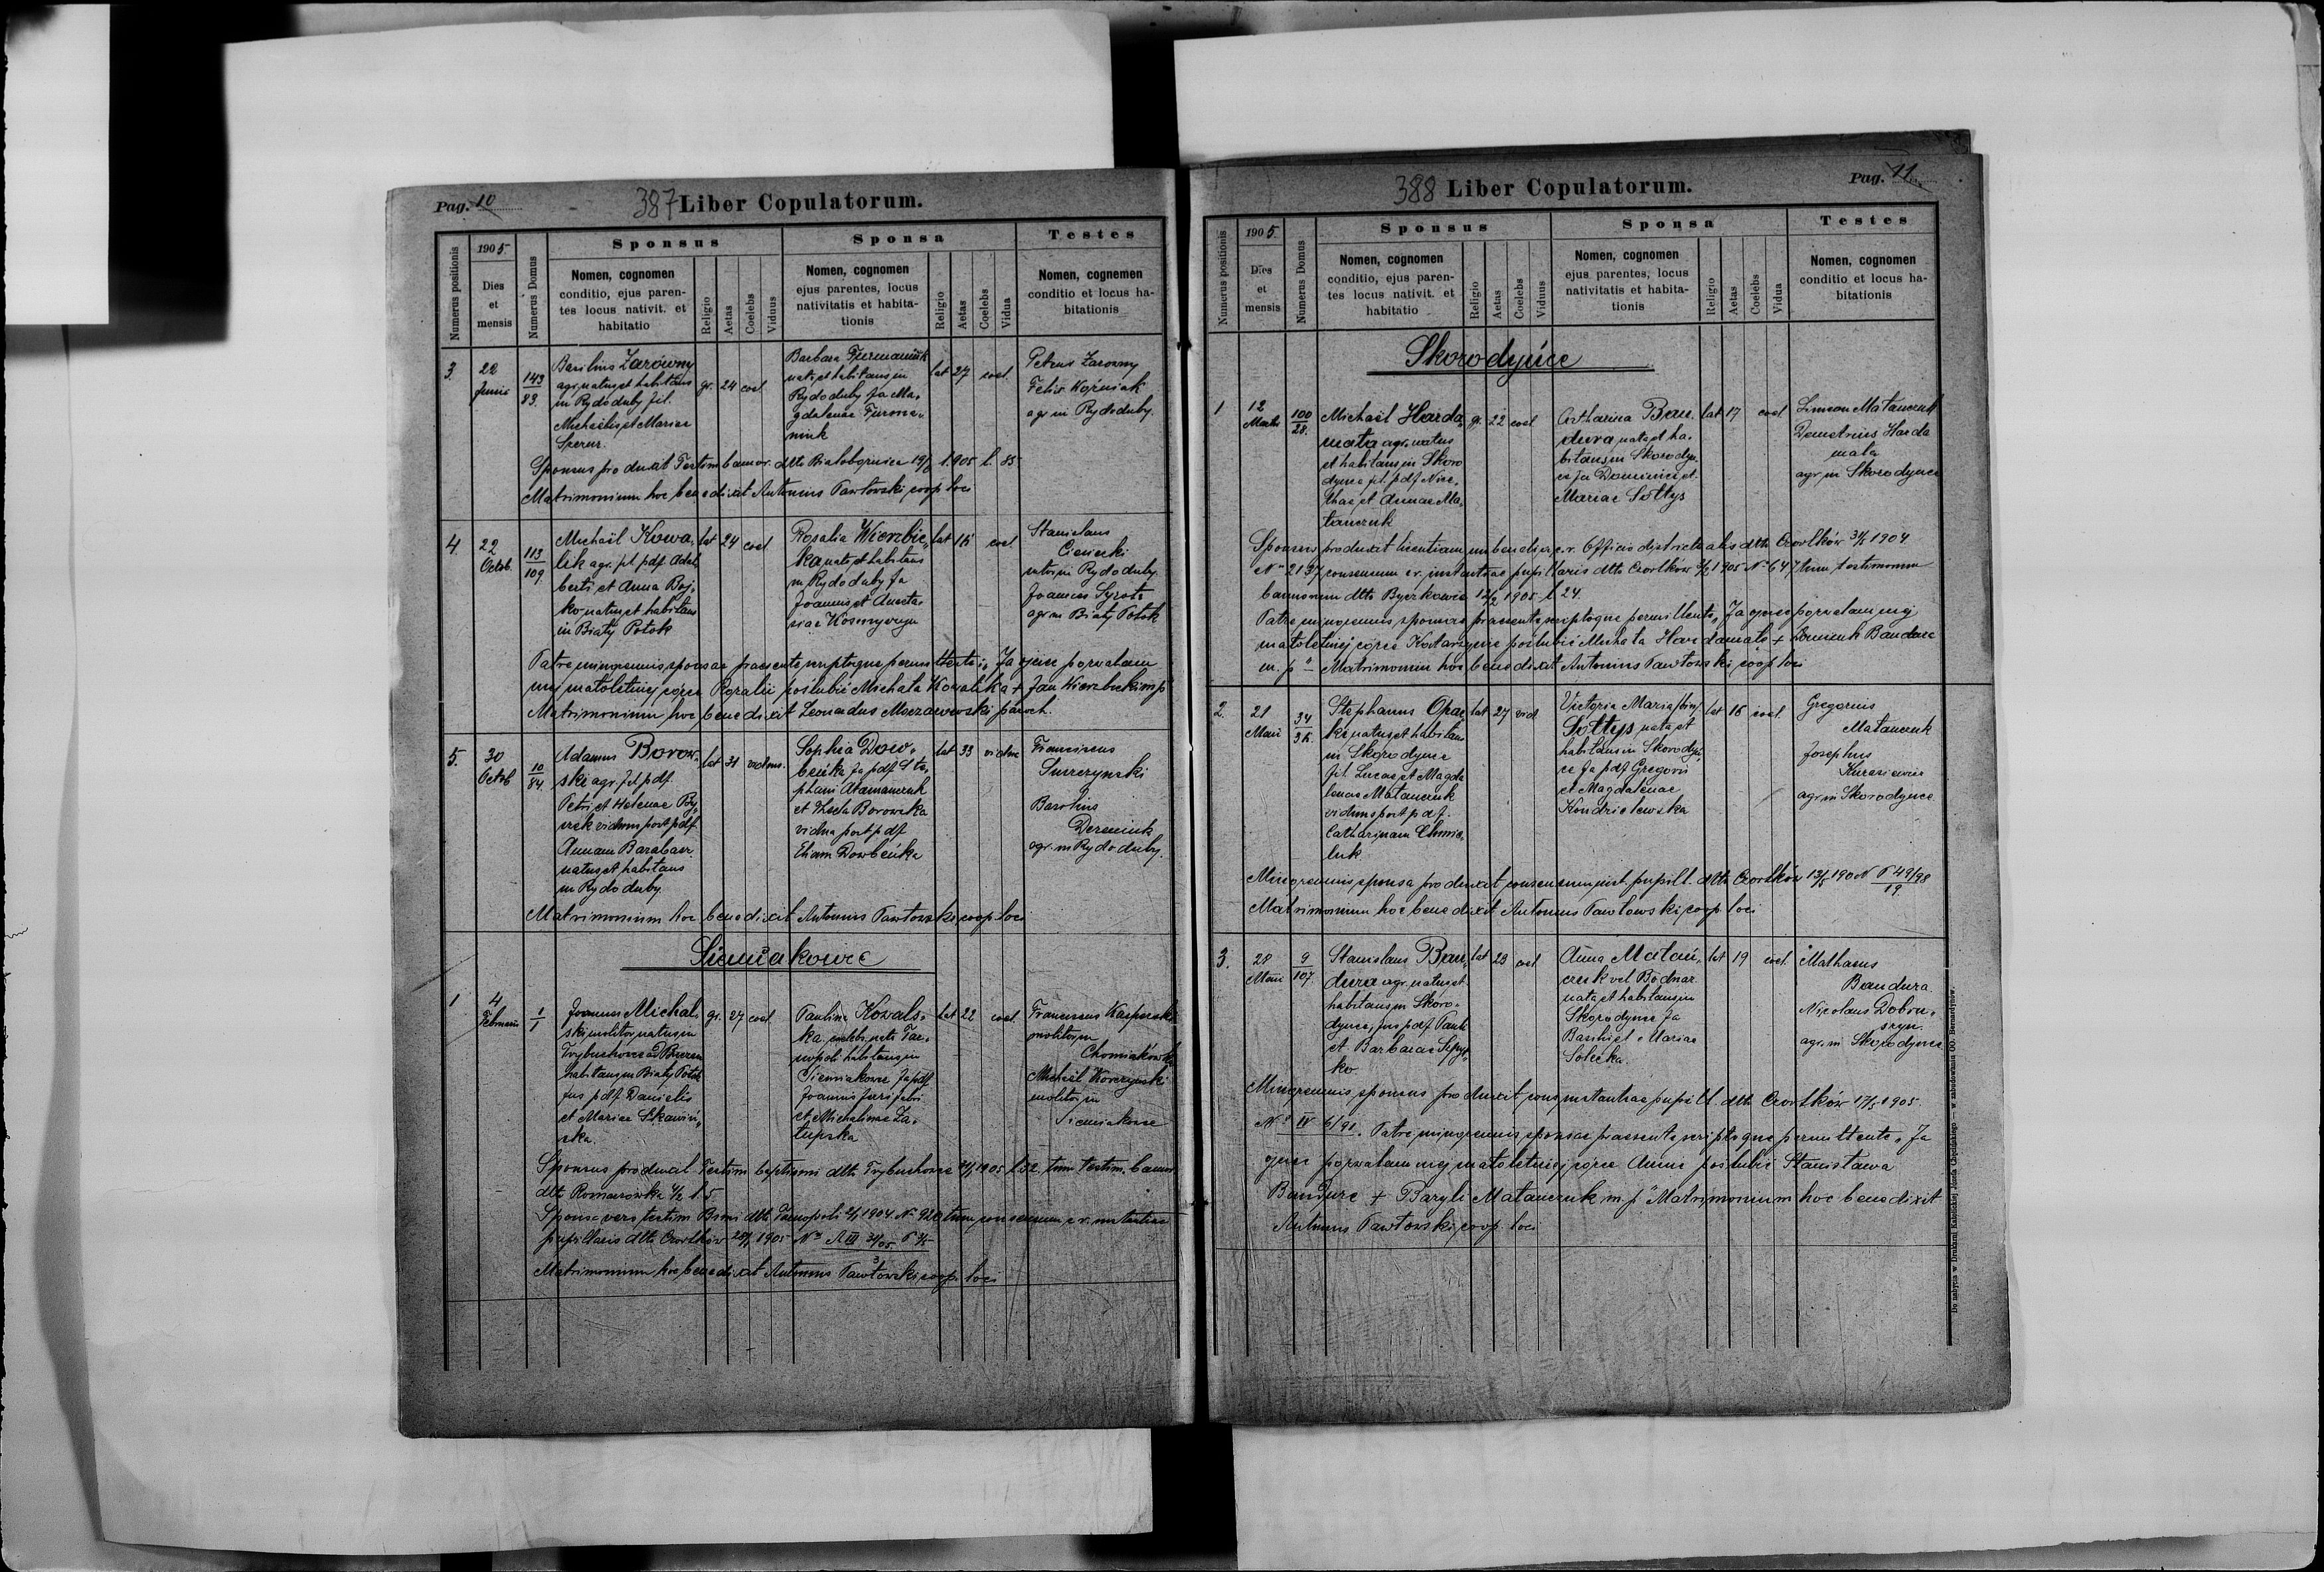 Pag. 10
387 Liber Copulatorum.
Numerus positionis
1905
Dies
et
mensis
Numerus Domus
Sponsus
Nomen, cognomen
conditio, ejus paren-
tes locus nativit. et
habitatio
Religio
Aetas
Coelebs
Viduus
Sponsa
Nomen, cognomen
ejus parentes, locus
nativitatis et habita-
tionis
Religio
Aetas
Coelebs
Vidua
Testes
Nomen, cognemen
conditio et locus ha-
bitationis
3.
22
Junii
143
83.
Basilius Zarówny
agr. natus et habitans
in Rydoduby fil.
Michaelis et Mariae
gr. 24 coel.
Barbara Furmaniuk
nata et habitans in
Rydoduby fa Ma-
gdalenae Furma-
niuk
lat 27 coel.
Petrus Zarowny
Felix Woźniak
agr in Rydoduby.
Sponsus produxit Testim bannor. dtto Białobożnica 19/6 1905 l. 85
Matrimonium hoc benedixit Antonius Pawłowski coop loci
4
22
Octob.
113
109.
Michaël Kowa-
lik agr. fil pdf Adal
berti et Anna Boj-
ko natus et habitans
in Biały Potok
lat 24 coel.
Rosalia Wierzbic-
ka nata et habitans
in Rydoduby fa
Joannis et Anasta-
siae
lat coel.
Stanislaus
Cieniecki
in Rydoduby.
Joannes
agr in Biały Potok
Patre minorennis sponsae praesente scriptoque permittente: Ja ojciec pozwalam
mej małoletniej córce Rozalii poślubić Michała Kowalika + Jan Wierzbicki mp
Matrimonium hoc benedixit Leonardus Moczarowski paroch.
5.
30
Octob
10
84.
Adamus Borow-
ski agr. fil pdf
Petri et Helenae By-
czek viduus post pdf
Annam Barabasz
natus et habitans
in Rydoduby.
lat 31 viduus.
Sophia Dow-
beńka fa pdf Ste-
phani Atamanczuk
et Thecla Borowska
vidua post pdf
Eliam Dowbeńka
lat 33 vidua
Franciscus
Basilius
Dereniuk
agr. in Rydoduby.
Matrimonium hoc benedixit Antonius Pawłowski, coop loci
Siemiakowce
1
4
Februarii
1
1
Joannes Michal-
ski molitor natus in
Trybuchowce
habitans in Biały Potok
fus pdf Danielis
et Mariae
gr. 27 coel.
Paulina Kowals-
ka coelebs, nata Tar-
nopoli habitans in
Siemiakowce fa pdf
Joannis
et Michalinae Za-
łupska
lat 22 coel.
Franciscus Kasperski
molitor in
Chomiakówka
Michaël Korczynski
molitor in
Siemiakowce
Sponsus produxit Testim baptismi dtto Trybuchowce 1905 l 32. tum testim. bannor
dtto Romaszówka l. 5
Sponsa vero testim Bsmi dtto Tarnopoli 1904 № 920 tum consensum c.r. instantiae
pupillaris dtto Czortków 1905 №
Matrimonium hoc benedixit Antonius Pawłowski, coop. loci
Pag. 11
388 Liber Copulatorum.
Numerus positionis
1905.
Dies
et
mensis
Numerus Domus
Sponsus
Nomen, cognomen
conditio, ejus paren-
tes locus nativit. et
habitatio
Religio
Aetas
Coelebs
Viduus
Sponsa
Nomen, cognomen
ejus parentes, locus
nativitatis et habita-
tionis
Religio
Aetas
Coelebs
Vidua
Testes
Nomen, cognomen
conditio et locus ha-
bitationis
Skorodyńce
1
12
Martii
100
28.
Michaël Harda-
mała agr. natus
et habitans in Skoro
dynce fil. pdf Nice-
thae et Annae Ma-
tanczuk
gr. 22 coel
Catharina Ban-
dura nata et ha-
bitans in Skorodyn-
ce fa Dominici et
Mariae Sołtys
lat 17 coel
Simeon Matanczuk
Demetrius Harda
mała
agr in Skorodynce
Sponsus produxit licentiam nubendi a c. r. Officio districtualis dtto Czortków 1904
№ 2137, consensum c.r. instantiae pupillaris dtto Czortków 1905 № 647 tum testimonium
bannorum dtto Byczkowce 12/2 1905 l 24.
Patre minorennis sponsae praesente scriptoque permittente, Ja ojciec pozwalam mej
małoletniej córce Katarzynie poślubić Michała Hardamałę + Dominik Bandura
m. p " Matrimonium hoc benedixit Antonius Pawłowski, coop loci
2.
21
Maii
34
Stephanus Opac-
ki natus et habitans
in Skorodynce
fil. Lucae et Magda
lenae Matanczuk
viduus post pdf.
Catharinam Chmie-
luk
lat 27 vid
Victoria Maria
Sołtys nata et
habitans in Skorodyń-
ce fa pdf Gregorii
et Magdalenae
Kondziolewska
lat 16 coel.
Gregorius
Matanczuk
Josephus
agr in Skorodynce
Minorennis sponsa produxit consensum inst. pupill. dtto Czortków 13/5 190 № P 49/98
19
Matrimonium hoc benedixit Antonius Pawłowski, coop loci
3.
28
Maii
9
107.
Stanislaus Ban-
dura agr. natus et
habitans in Skoro-
dynce, fus pdf Pauli
et Barbarae
lat 23 coel
Anna Matań-
czuk vel Bodnar
nata et habitans in
Skorodynce fa
Basilii et Mariae
Solecka.
lat 19 coel.
Mathaeus
Bandura.
Nicolaus
agr. in Skorodynce
Minorennis sponsus produxit cons. instantiae pupill. dtto Czortków 17/5 1905.
№ IV 6/91. Patre minorennis sponsae praesente scriptoque permittente „Ja
ojciec pozwalam mej małoletniej córce Annie poślubić Stanisława
Bandurę + Bazyli Matanczuk m. p" Matrimonium hoc benedixit
Antonius Pawłowski, coop. loci
Do nabycia w Drukarni Katolickiej Józefa Chęcińskiego — w zabudowaniu OO. Bernardynów.